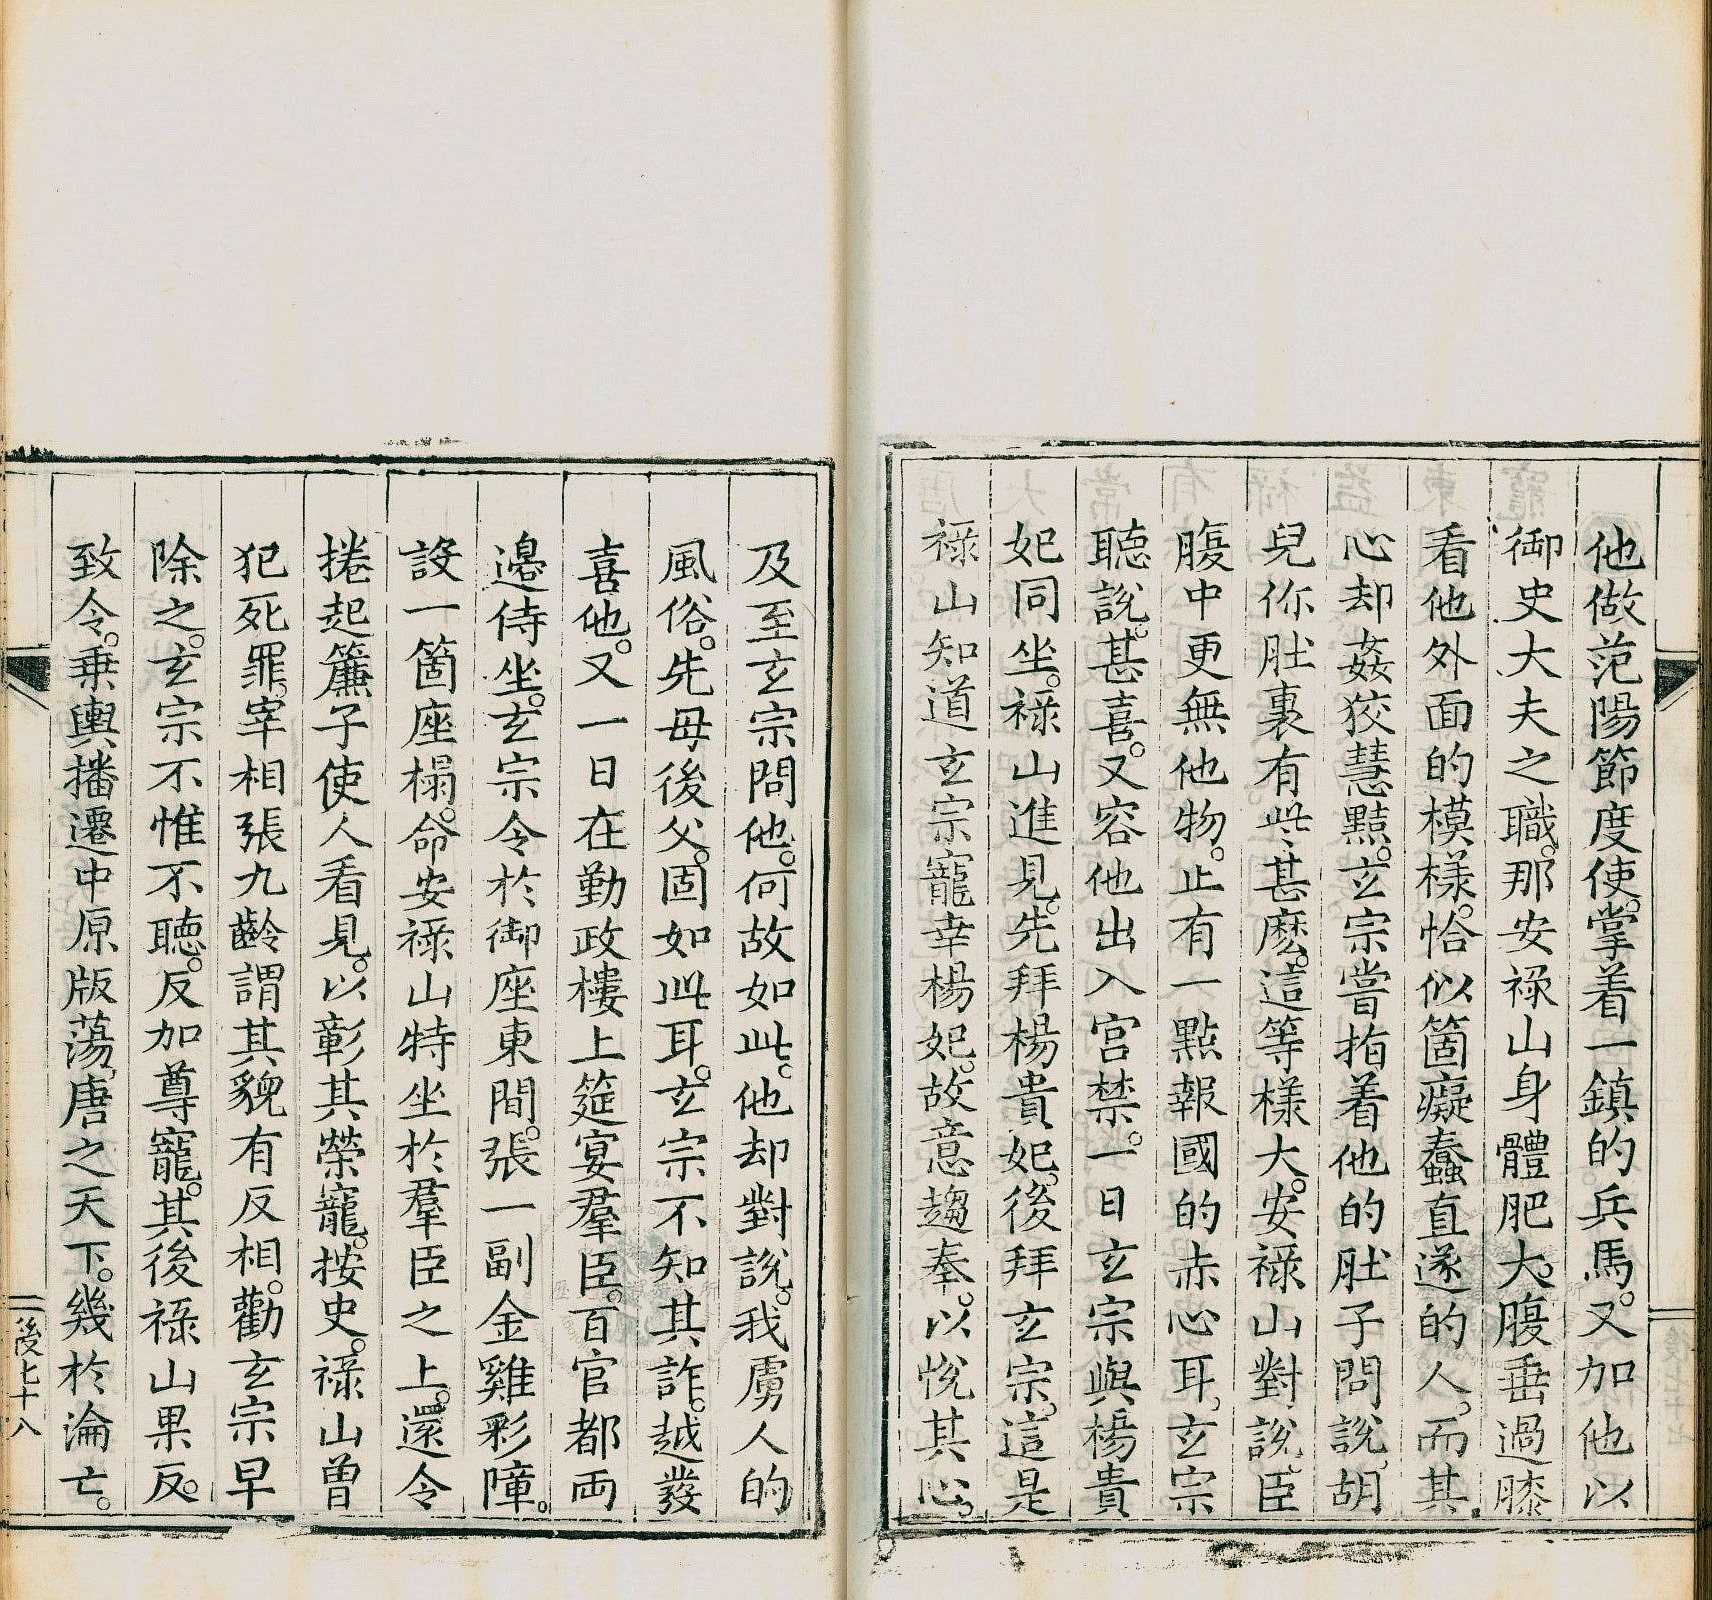 他做范陽節度使。掌着一鎮的兵馬。又加他以
御史大夫之職。那安祿山身體肥大。腹垂過膝
看他外面的模樣。恰似箇癡蠢直遂的人。而其
心却姦狡慧黠。玄宗嘗指着他的肚子問說。胡
兒你肚裏有些甚麽。這等樣大。安祿山對說。臣
腹中更無他物。止有一點報國的赤心耳。玄宗
聽說。甚喜。又容他出入宮禁。一日玄宗與楊貴
妃同坐。祿山進見。先拜楊貴妃。後拜玄宗。這是
祿山知道玄宗寵幸楊妃。故意趨奉。以悅其心。
及至玄宗問他。何故如此。他却對說。我虜人的
風俗。先母後父。固如此耳。玄宗不知其詐。越發
喜他。又一日在勤政樓上筵宴羣臣。百官都両
邉侍坐。玄宗令於御座東間。張一副金雞彩障。
設一箇座榻。命安祿山特坐於羣臣之上。還令
捲起簾子使人看見。以彰其榮寵。按史。祿山曽
犯死罪。宰相張九齡謂其貌有反相。勸玄宗早
除之。玄宗不惟不聽。反加尊寵。其後祿山果反。
致令。乗輿播遷中原版蕩。唐之天下。幾於淪亡。
後七十八